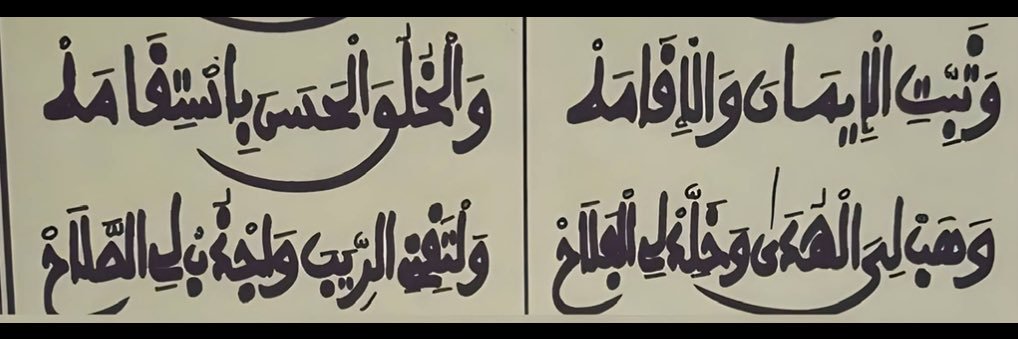 وَثَبِّتِ الْإِيمَانَ وَالْإِقَامَهْ وَالْخُلُقَ الْحَسَنَ بِاسْتِقَامَهْ
وَهَبْ لِيَ الْهُدَى وَخَلِّدْ لِي الْفَلَاحْ وَلْتَقِنِ الرِّيَبَ وَاجْذِبْ لِي الصَّلَاحْ